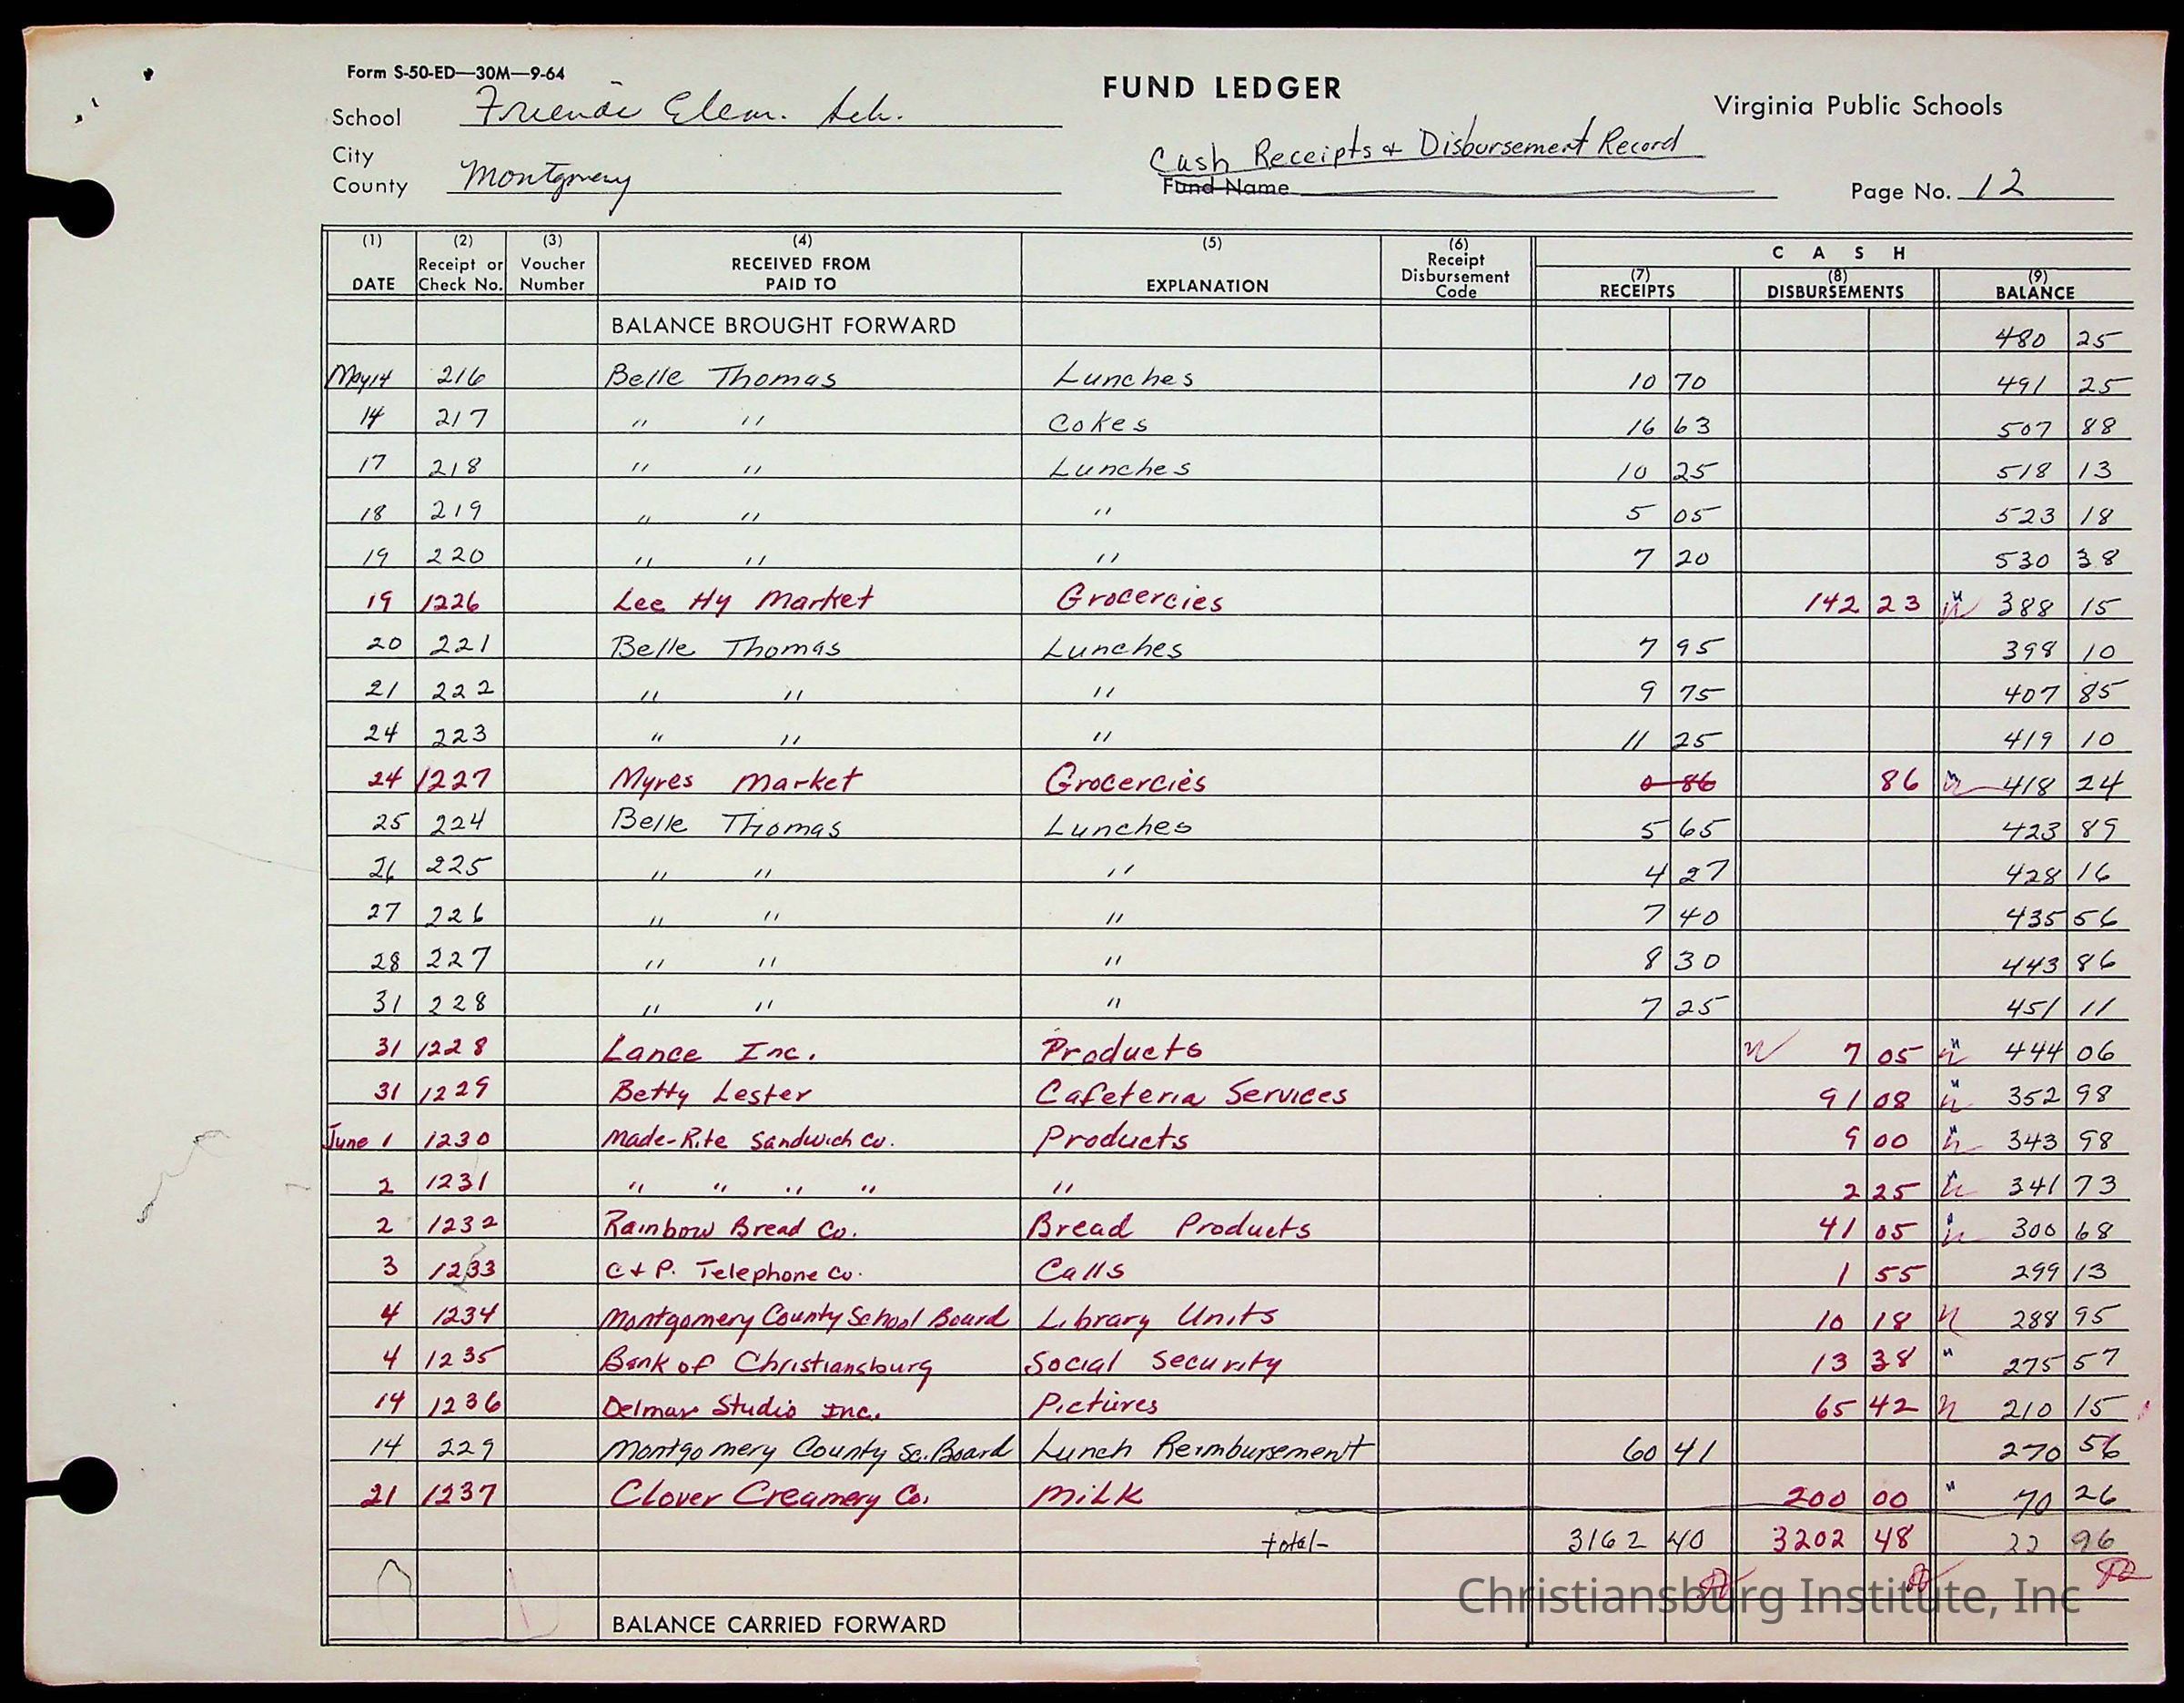 Form S-50-ED—30M—9-64
FUND LEDGER
Virginia Public Schools
School Elem. Sch.
City
County Montgomery
Cash Receipts & Disbursement Record
Fund Name
Page No. 12
(1) (2) (3) (4) (5) (6) C A S H
DATE Receipt or Check No. Voucher Number RECEIVED FROM PAID TO EXPLANATION Receipt Disbursement Code (7) RECEIPTS (8) DISBURSEMENTS (9) BALANCE
BALANCE BROUGHT FORWARD 480 25
May 14 216 Belle Thomas Lunches 10 70 491 25
14 217 " " Cokes 16 63 507 88
17 218 " " Lunches 10 25 518 13
18 219 " " " 5 05 523 18
19 220 " " " 7 20 530 38
19 1226 Lee Hy Market Grocercies 142 23 388 15
20 221 Belle Thomas Lunches 7 95 398 10
21 222 " " " 9 75 407 85
24 223 " " " 11 25 419 10
24 1227 Myres Market Grocercies 0 86 86 418 24
25 224 Belle Thomas Lunches 5 65 423 89
26 225 " " " 4 27 428 16
27 226 " " " 7 40 435 56
28 227 " " " 8 30 443 86
31 228 " " " 7 25 451 11
31 1228 Lance Inc. Products 7 05 444 06
31 1229 Betty Lester Cafeteria Services 91 08 352 98
June 1 1230 Made-Rite Sandwich Co. Products 9 00 343 98
2 1231 " " " " " 2 25 341 73
2 1232 Rainbow Bread Co. Bread Products 41 05 300 68
3 1233 C & P. Telephone Co. Calls 1 55 299 13
4 1234 Montgomery County School Board Library Units 10 18 288 95
4 1235 Bank of Christiansburg Social Security 13 38 275 57
14 1236 Delmar Studio Inc. Pictures 65 42 210 15
14 229 Montgomery County Sc. Board Lunch Reimbursement 60 41 270 56
21 1237 Clover Creamery Co. Milk 200 00 70 26
total- 3162 40 3202 48 22 96
Christiansburg Institute, Inc
BALANCE CARRIED FORWARD